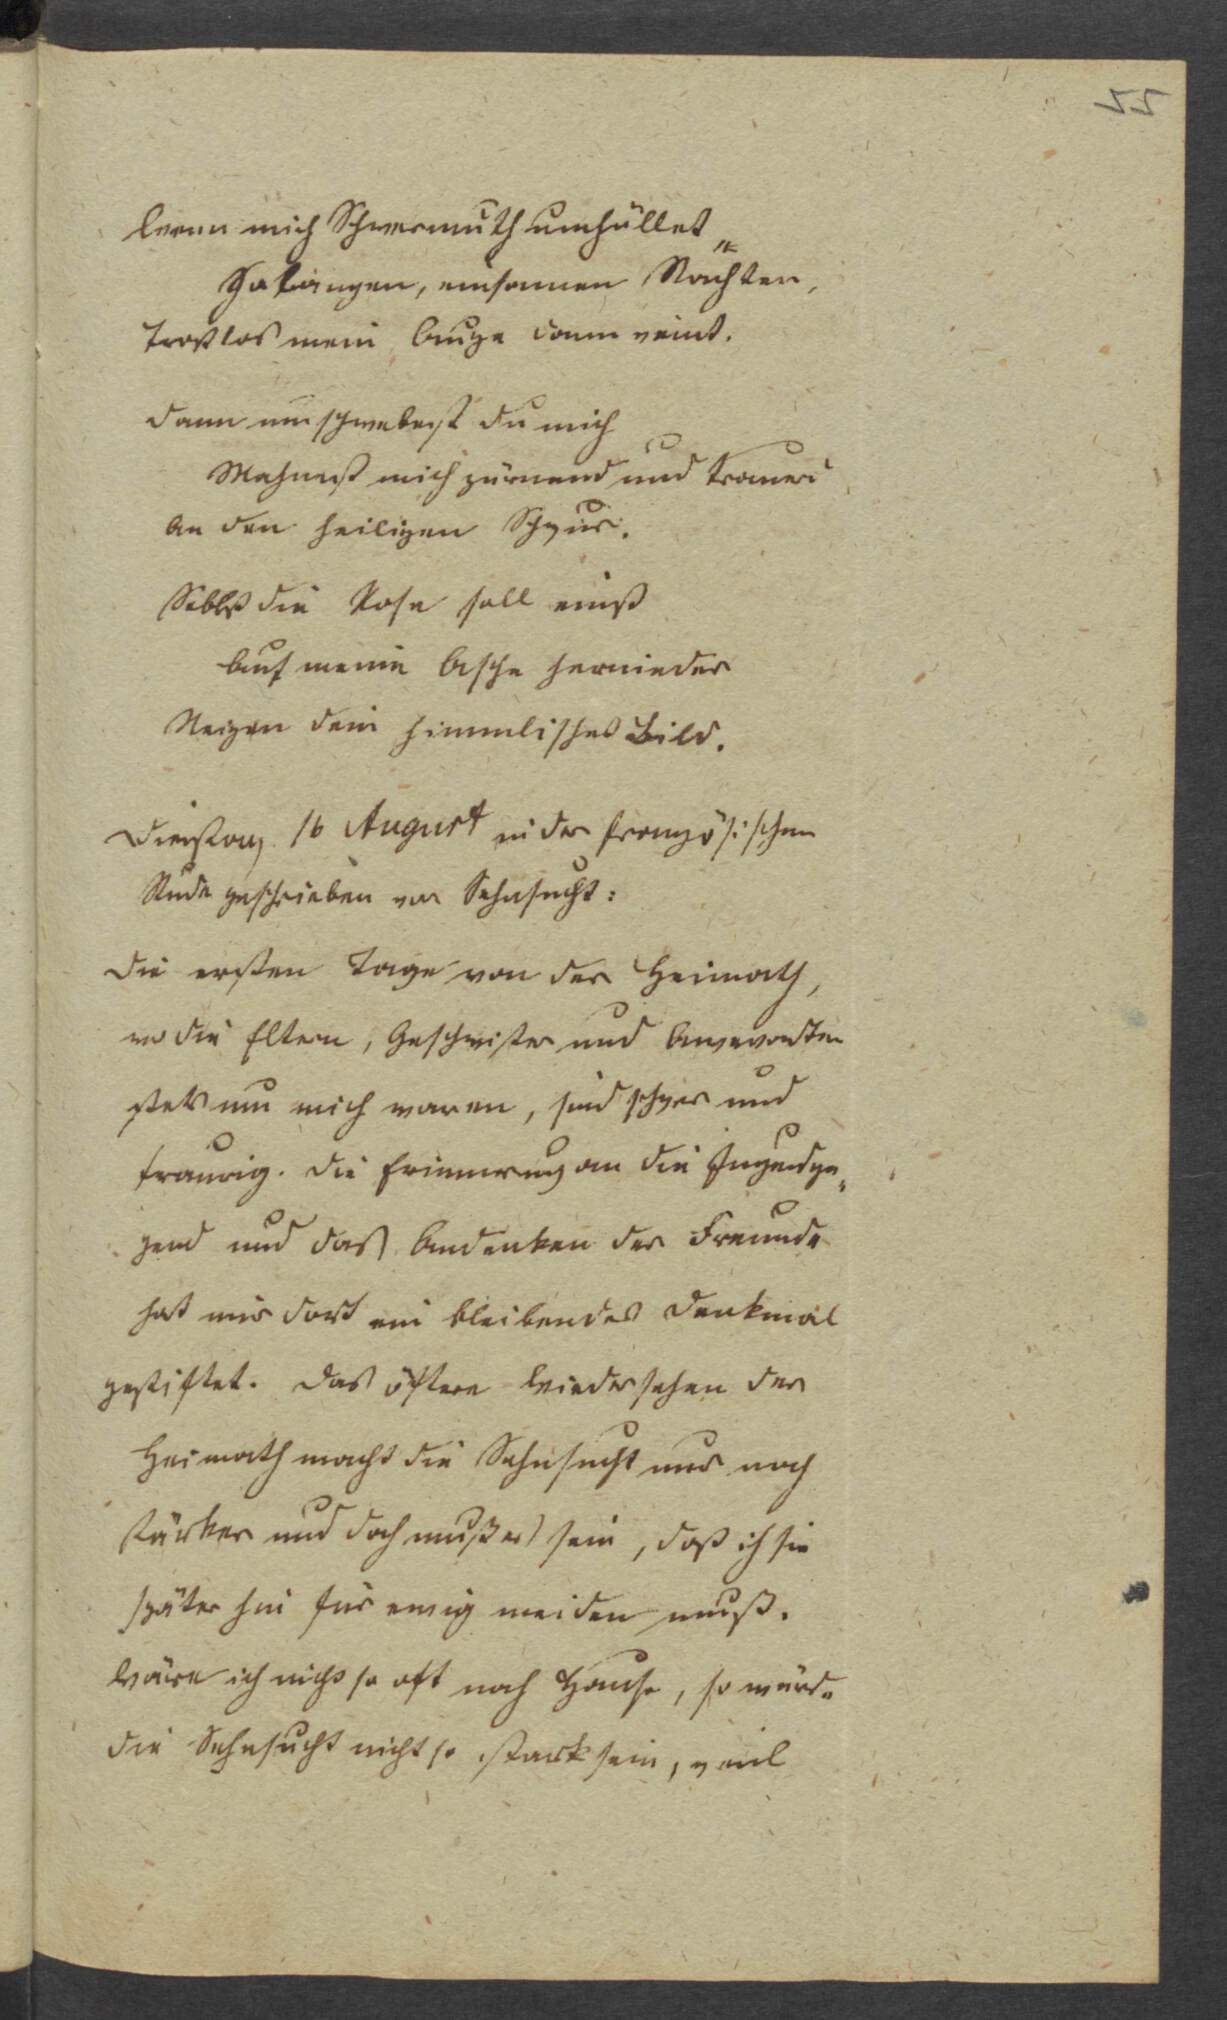 22
Wenn mich Schwermuth umhüllet
In langen, einsamen Nächten,
Trostlos mein Auge dann weint.
Dann umschwebest du mich
Mahnest mich zürnend und trauernd
An den heiligen Schwur.
Selbst die Rose soll einst
Auf meine Asche hernieder
Neigen dein himmlisches Bild.
Dienstag 16 August in der französischen
Stunde geschrieben vor Sehnsucht:
Die ersten Tage von der Heimath,
wo die Eltern, Geschwister und Anverwandten
stets um mich waren, sind schwer und
traurig. Die Erinnerung an die Jugendge-
gend und das Andenken der Freunde
hat mir dort ein bleibendes Denkmal
gestiftet. Das öftere Wiedersehen der
Heimath macht die Sehnsucht nur noch
stärker und doch muß es sein, daß ich sie
später hin für ewig meiden muß.
Wäre ich nicht so oft nach Hause, so würde
die Sehnsucht nicht so stark sein, weil